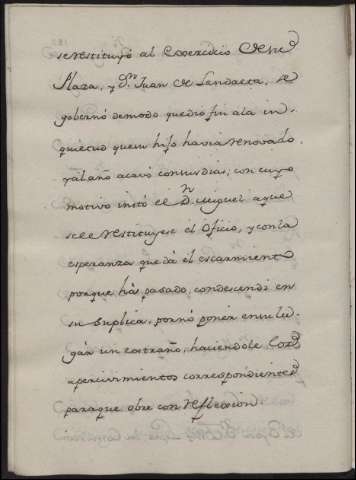 se restituyó al Exercicio de ssª
Plaza, y Dn. Juan de Landaeta, se
gobernó demodo que dió fin ala in
quietud que su hijo havia renovado,
yal año acavó consus dias, con cuyo
motivo instó el Dn. Miguel aque
sele restituyese el Oficio, y conla
esperanza que dá el escarmiento
porque há pasado, condescendi en
su suplica, por nó poner en su lu-
gár un extraño, haciendole los
apercivimientos correspondientes
paraque obre con reflexcion